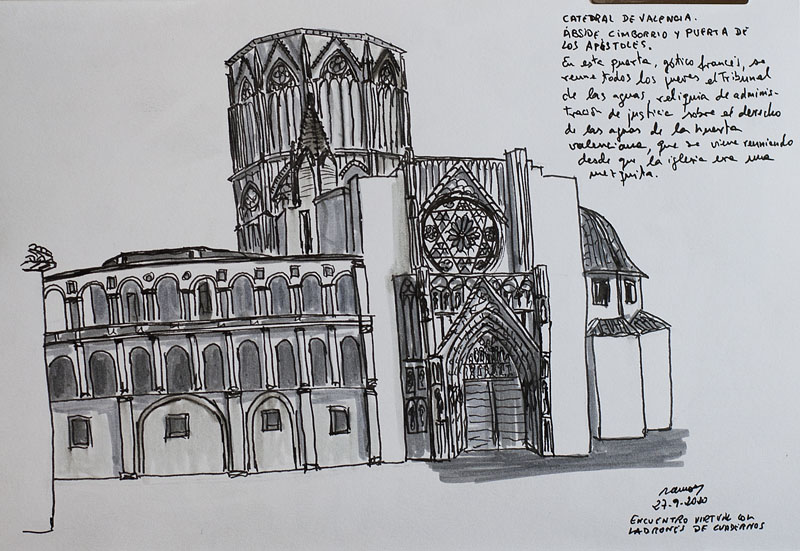 CATEDRAL DE VALENCIA.
ÁBSIDE, CIMBORRIO Y PUERTA DE
LOS APÓSTOLES.
En esta puerta, gótico francés, se
reune todos los jueves el Tribunal
de las aguas, reliquia de adminis-
tración de justicia sobre el derecho
de las aguas de la huerta
valenciana, que se viene reuniendo
desde que la iglesia era una
mezquita.
Ramon
27-9-2020
ENCUENTRO VIRTUAL CON
LADRONES DE CUADERNOS